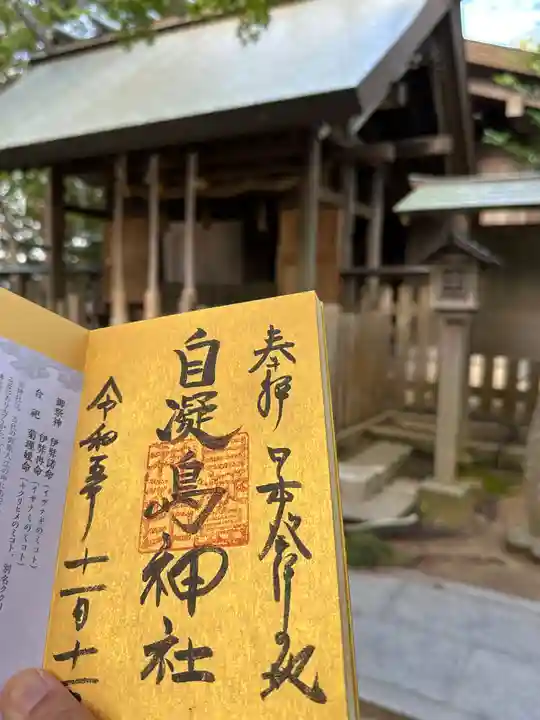 奉拝 日本発祥の地
自凝島神社
令和五年 十一月十一
御祭神 伊弉諾命 (イザナギのミコト)
伊弉冉命 (イザナミのミコト)
合祀 菊理媛命 (キクリヒメのミコト・ 別名ククリ